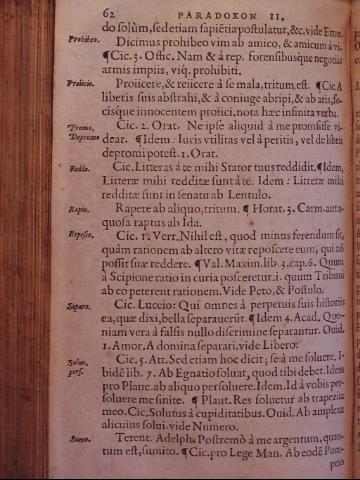 62 PARADOXON II.
do solùm, sed etiam sapiẽtia postulatur, &c. vide Emo.
Prohibeo. Dicimus prohibeo vim ab amico, & amicum à vi.
¶Cic. 3. Offic. Nam & à rep. forensibusque negotiis
armis impiis, viq. prohibiti.
Proiicio. Proiicere, & reiicere à se mala, tritum est. ¶Cic. A
liberis suis abstrahi, & à coniuge abripi, & ab aris, fo-
cisque innocentem proiici. nota hæc infinita verba.
Promo, Cic. 2. Orat. Ne ipse aliquid à me promsisse vi-
Depromo dear. ¶Idem: Iuris vtilitas vel à peritis, vel de libris
depromi potest. 1. Orat.
Reddo. Cic. Litteras à te mihi Stator tuus reddidit. ¶Idem,
Litteræ mihi redditæ sunt à te. Idem: Litteræ mihi
redditæ sunt in senatu ab Lentulo.
Rapio. Rapere ab aliquo, tritum. ¶ Horat. 3. Carm. aut a-
quosa raptus ab Ida.
Reposco. Cic. 1. Verr. Nihil est, quod minus ferendum sit,
quàm rationem ab altero vitæ reposcere eum, qui nõ
possit suæ reddere. ¶Val. Maxim. lib. 3. cap. 6. Quum
à Scipione ratio in curia posceretur. i. quum Tribuni
ab eo peterent rationem. Vide Peto, & Postulo.
Separo. Cic. Luccio: Qui omnes à perpetuis suis historiis
ea, quæ dixi, bella separauerũt. ¶Idem 4. Acad. Quo-
niam vera à falsis nullo discrimine separantur. Ouid.
1. Amor. A domina separari. vide Libero.
Soluo, Cic. 5. Att. Sed etiam hoc dicit; se à me soluere. I-
pers. bidẽ lib. 7. Ab Egnatio soluat, quod tibi debet. Idem
pro Planc. ab aliquo persoluere. Idem. Id à vobis per-
soluere me sinite. ¶ Plaut. Res soluetur ab trapezita
meo. Cic. Solutus à cupiditatibus. Ouid. Ab amplexu
alicuius solui. vide Numero.
Sumo. Terent. Adelph. Postremò à me argentum, quan-
tum est, sumito. ¶Cic. pro Lege Man. Ab eodẽ Pom-
peio